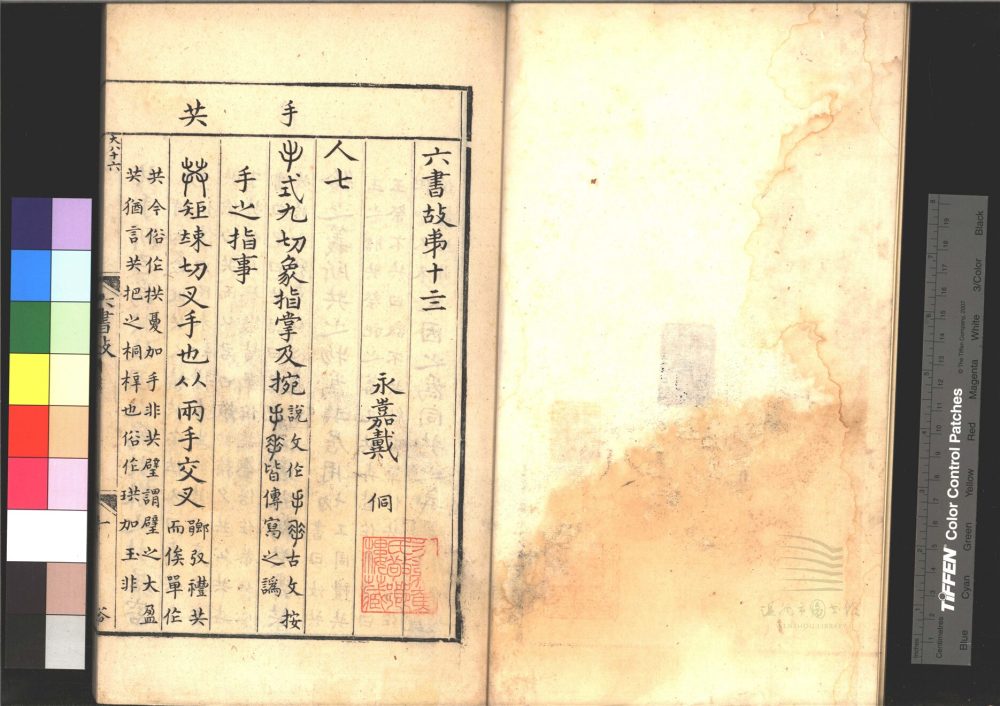 手
共
六書故弟十三
永嘉戴 侗
人七
手式九切象指掌及捥說文作
古文按
皆傳寫之譌
手之指事
矩竦切叉手也从兩手交叉鄭氏禮共
而俟單作
共今俗作拱憂加手非共璧謂璧之大盈
共猶言共把之桐梓也俗作珙加玉非
大八十六
六書故
TIFFEN Color Control Patches
© The Tiffen Company, 2007
Centimetres
Inches
Blue
Cyan
Green
Yellow
Red
Magenta
White
3/Color
Black